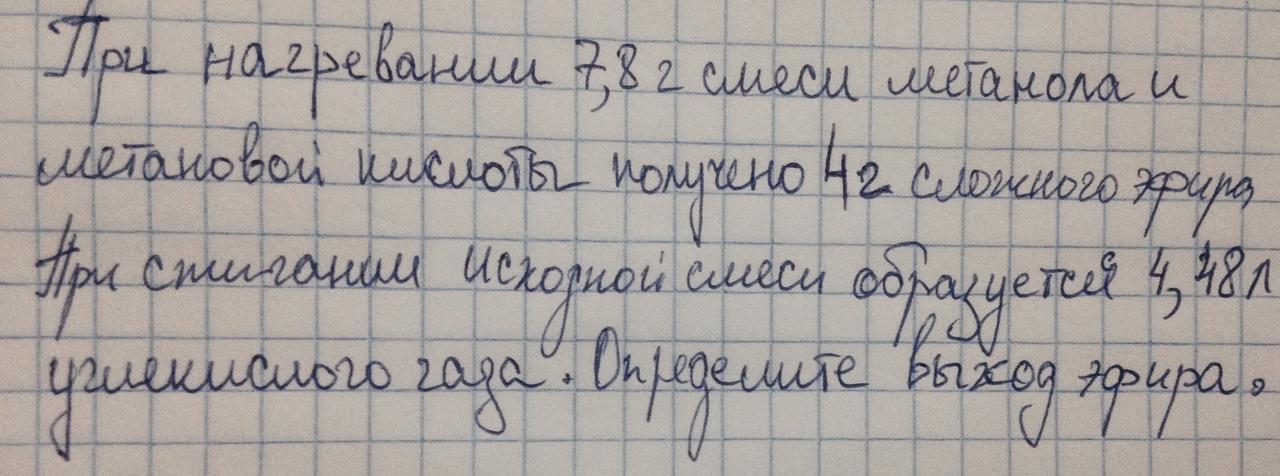 При нагревании 7,8 г смеси метанола и
метановой кислоты получено 4г сложного эфира,
При сжигании исходной смеси образуется 4,48 л
углекислого газа. Определите выход эфира.